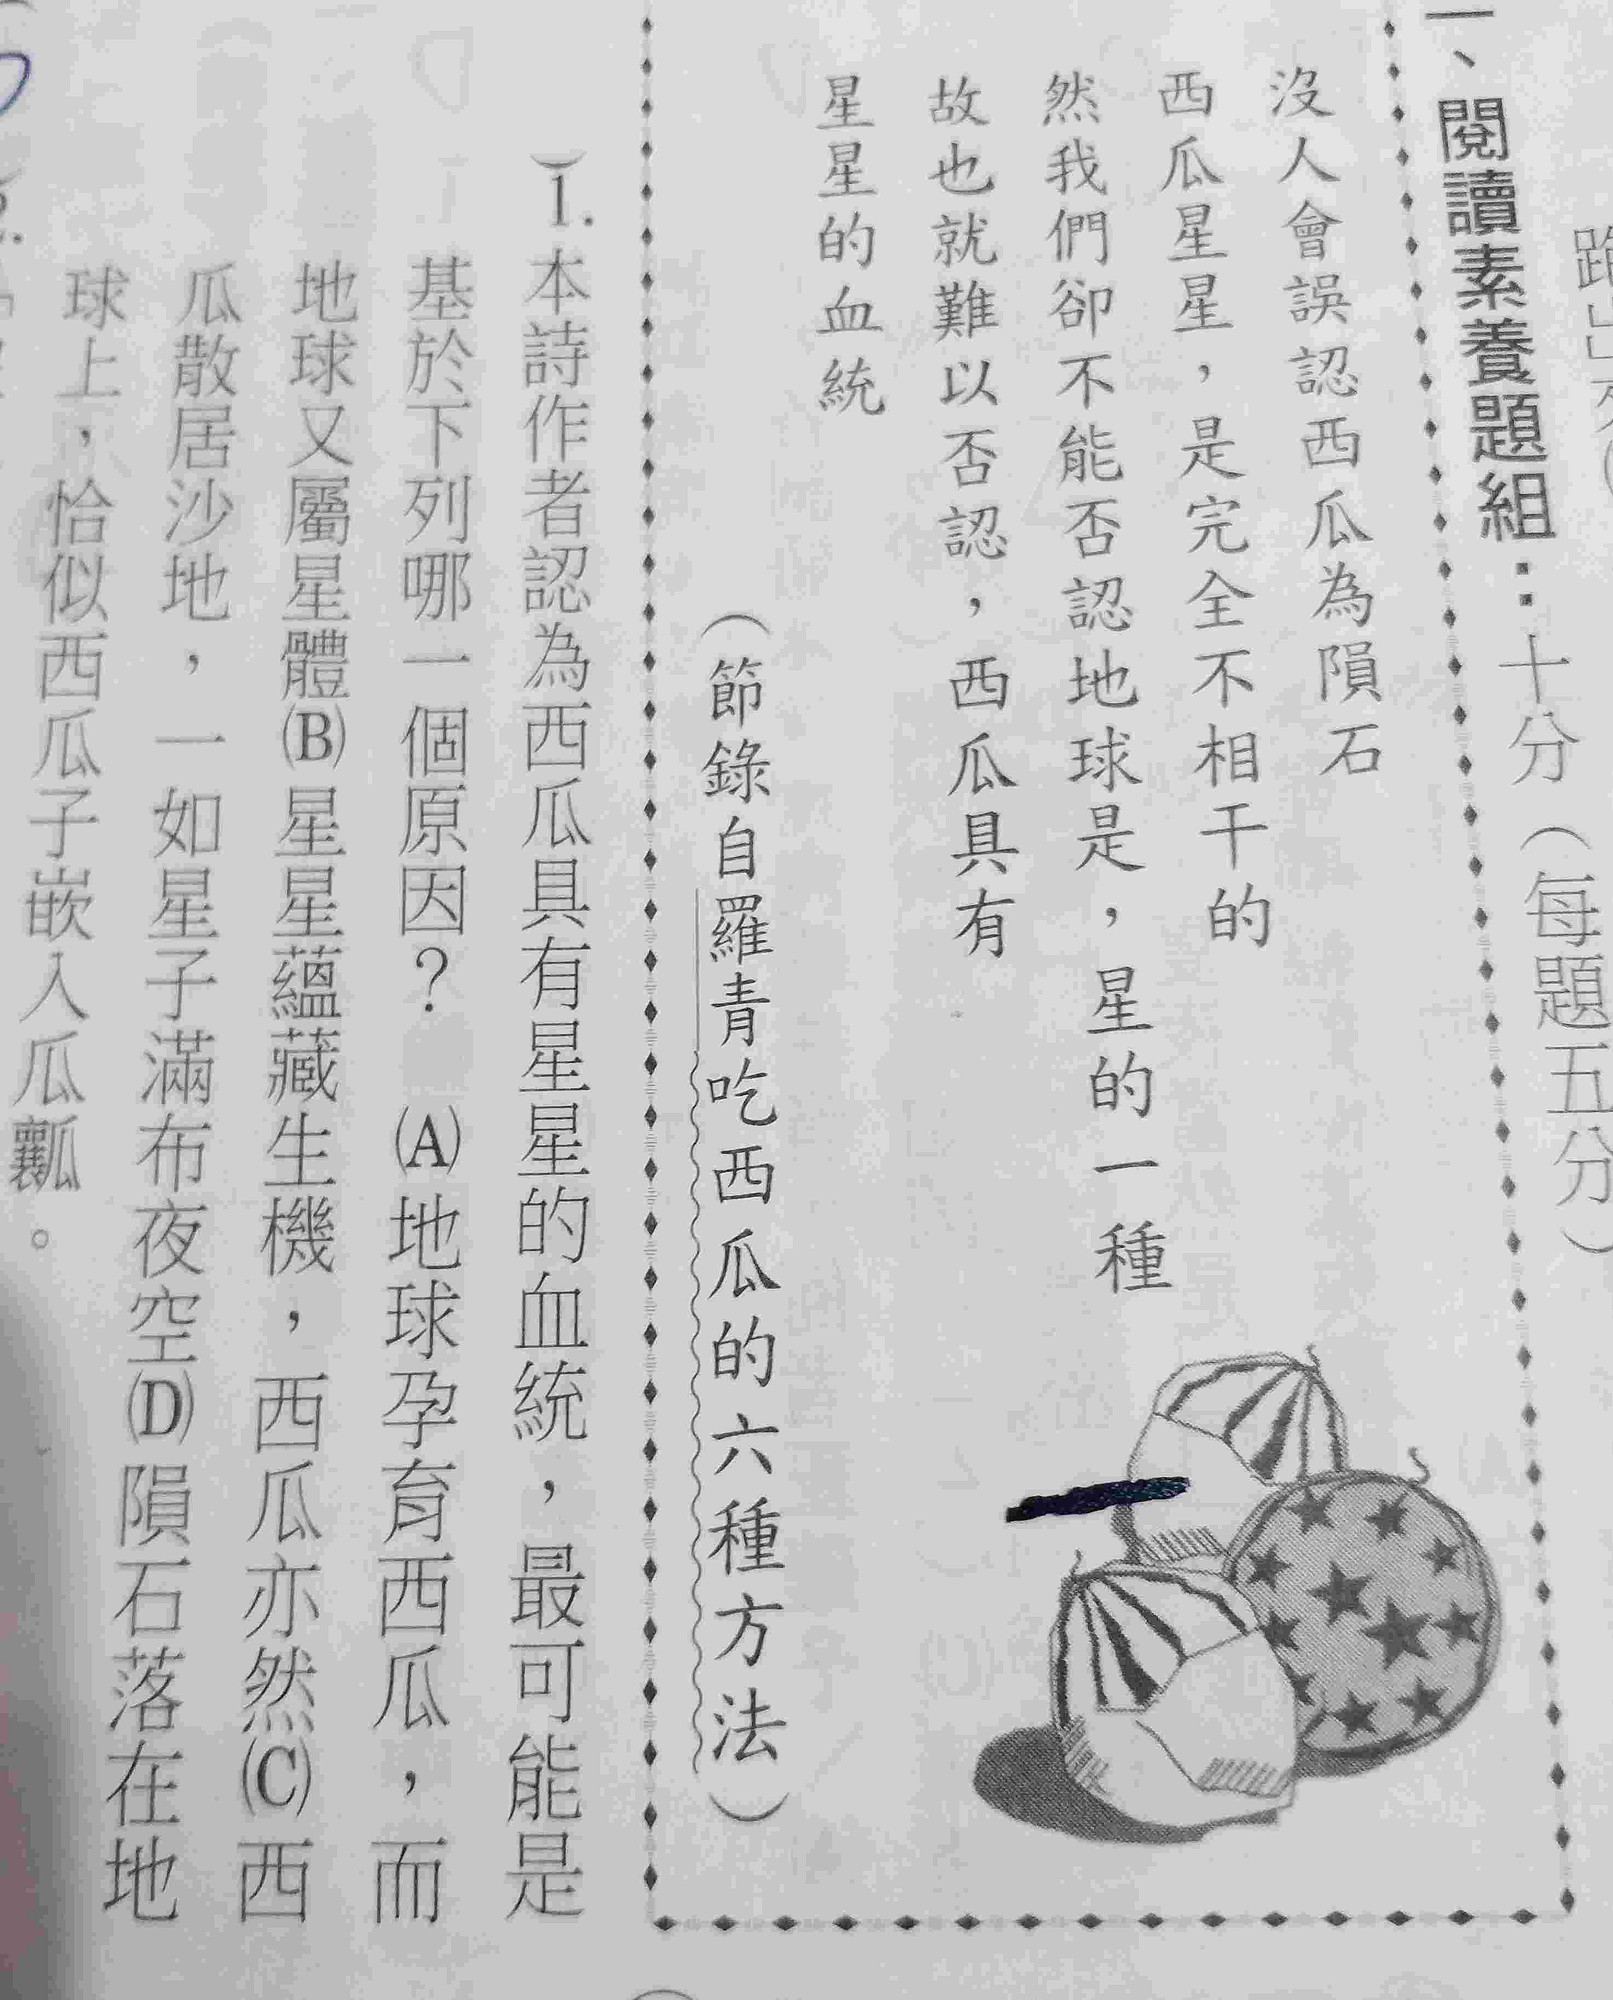 一、閱讀素養題組：十分（每題五分）
沒人會誤認西瓜為隕石
西瓜星星，是完全不相干的
然我們卻不能否認地球是，星的一種
故也就難以否認，西瓜具有
星星的血統
（節錄自羅青吃西瓜的六種方法）
）1.本詩作者認為西瓜具有星星的血統，最可能是
基於下列哪一個原因？　(A)地球孕育西瓜，而
地球又屬星體(B)星星蘊藏生機，西瓜亦然(C)西
瓜散居沙地，一如星子滿布夜空(D)隕石落在地
球上，恰似西瓜子嵌入瓜瓤。